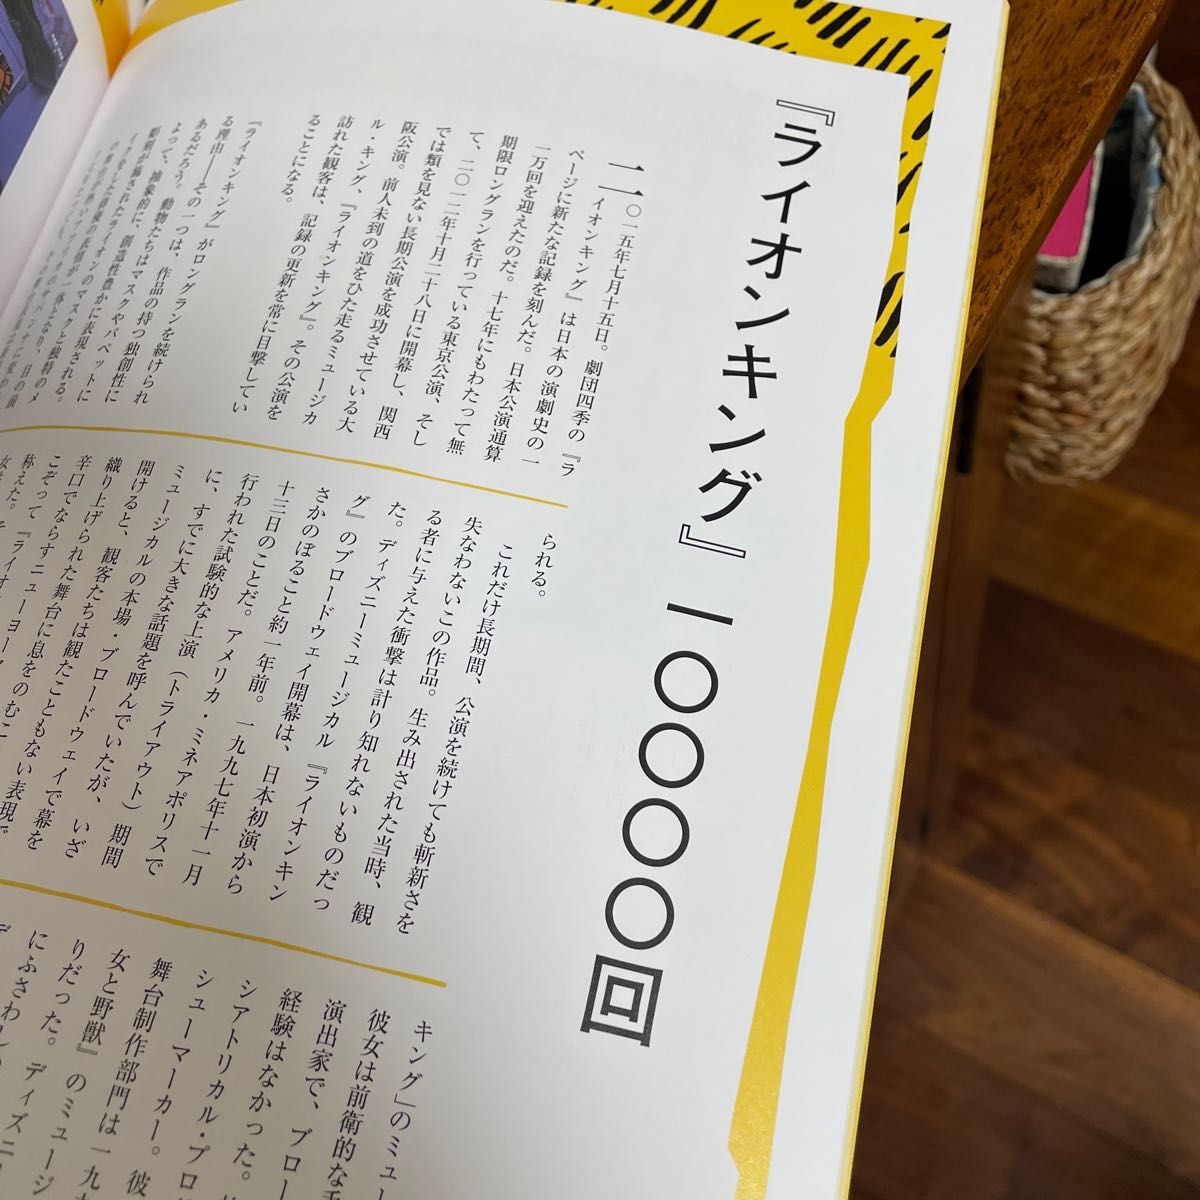 『ライオンキング』一〇〇〇〇回
二〇一五年七月十五日。劇団四季の『ラ
イオンキング』は日本の演劇史の一
ページに新たな記録を刻んだ。日本公演通算
一万回を迎えたのだ。十七年にもわたって無
期限ロングランを行っている東京公演、そし
て、二〇一二年十月二十八日に開幕し、関西
では類を見ない長期公演を成功させている大
阪公演。前人未到の道をひた走るミュージカ
ル・キング、『ライオンキング』。その公演を
訪れた観客は、記録の更新を常に目撃してい
ることになる。
『ライオンキング』がロングランを続けられ
る理由――その一つは、作品の持つ独創性に
あるだろう。動物たちはマスクやパペットに
よって、抽象的に、創造性豊かに表現される。
られる。
これだけ長期間、公演を続けても斬新さを
失なわないこの作品。生み出された当時、観
る者に与えた衝撃は計り知れないものだっ
た。ディズニーミュージカル『ライオンキン
グ』のブロードウェイ開幕は、日本初演から
さかのぼること約一年前。一九九七年十一月
十三日のことだ。アメリカ・ミネアポリスで
行われた試験的な上演（トライアウト）期間
に、すでに大きな話題を呼んでいたが、いざ
ミュージカルの本場・ブロードウェイで幕を
開けると、観客たちは観たこともない表現で
織り上げられた舞台に息をのむこ
辛口でならすニューヨーク
こぞって『ライオ
称えた。そ
キング』のミュー
彼女は前衛的な
演出家で、ブロー
経験はなかった。
シアトリカル・プロ
シューマーカー。彼
舞台制作部門は一九
女と野獣』のミュージ
りだった。ディズニー
にふさわし